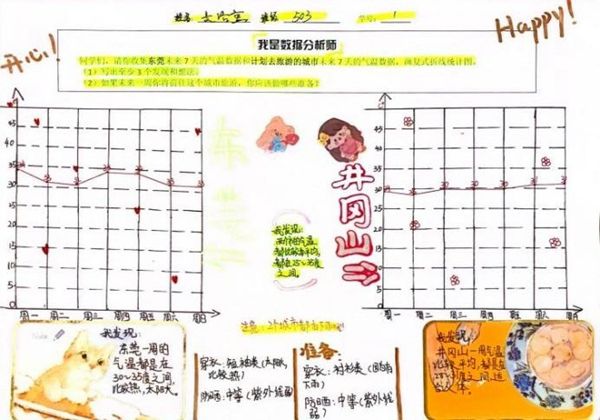 班级 503
学号: 1
开心!
Happy!
我是数据分析师
同学们,请你收集东莞未来7天的气温数据和计划去旅游的城市未来7天的气温数据,画复式折线统计图。
(1)写出至少3个发现和想法。
(2)如果未来一周你将前往这个城市旅游,你应该做哪些准备?
东莞
井冈山
45
40
35
30
25
20
15
10
5
0
周一 周二 周三 周四 周五 周六 周日
45
40
35
30
25
20
15
10
5
0
周一 周二 周三 周四 周五 周六 周日
我发现:
都在25~35度
之间。
我发现:
东莞一周的
气温都是在
30~35度之间,
比较热,太阳大
准备:
穿衣:短袖类(太阳大,
比较热)
防晒:中等(紫外线弱)
穿衣:衬衫类(因有
下雨)
防晒:中等(紫外线
弱)
我发现:
井冈山一周气温
比较平均,都是在